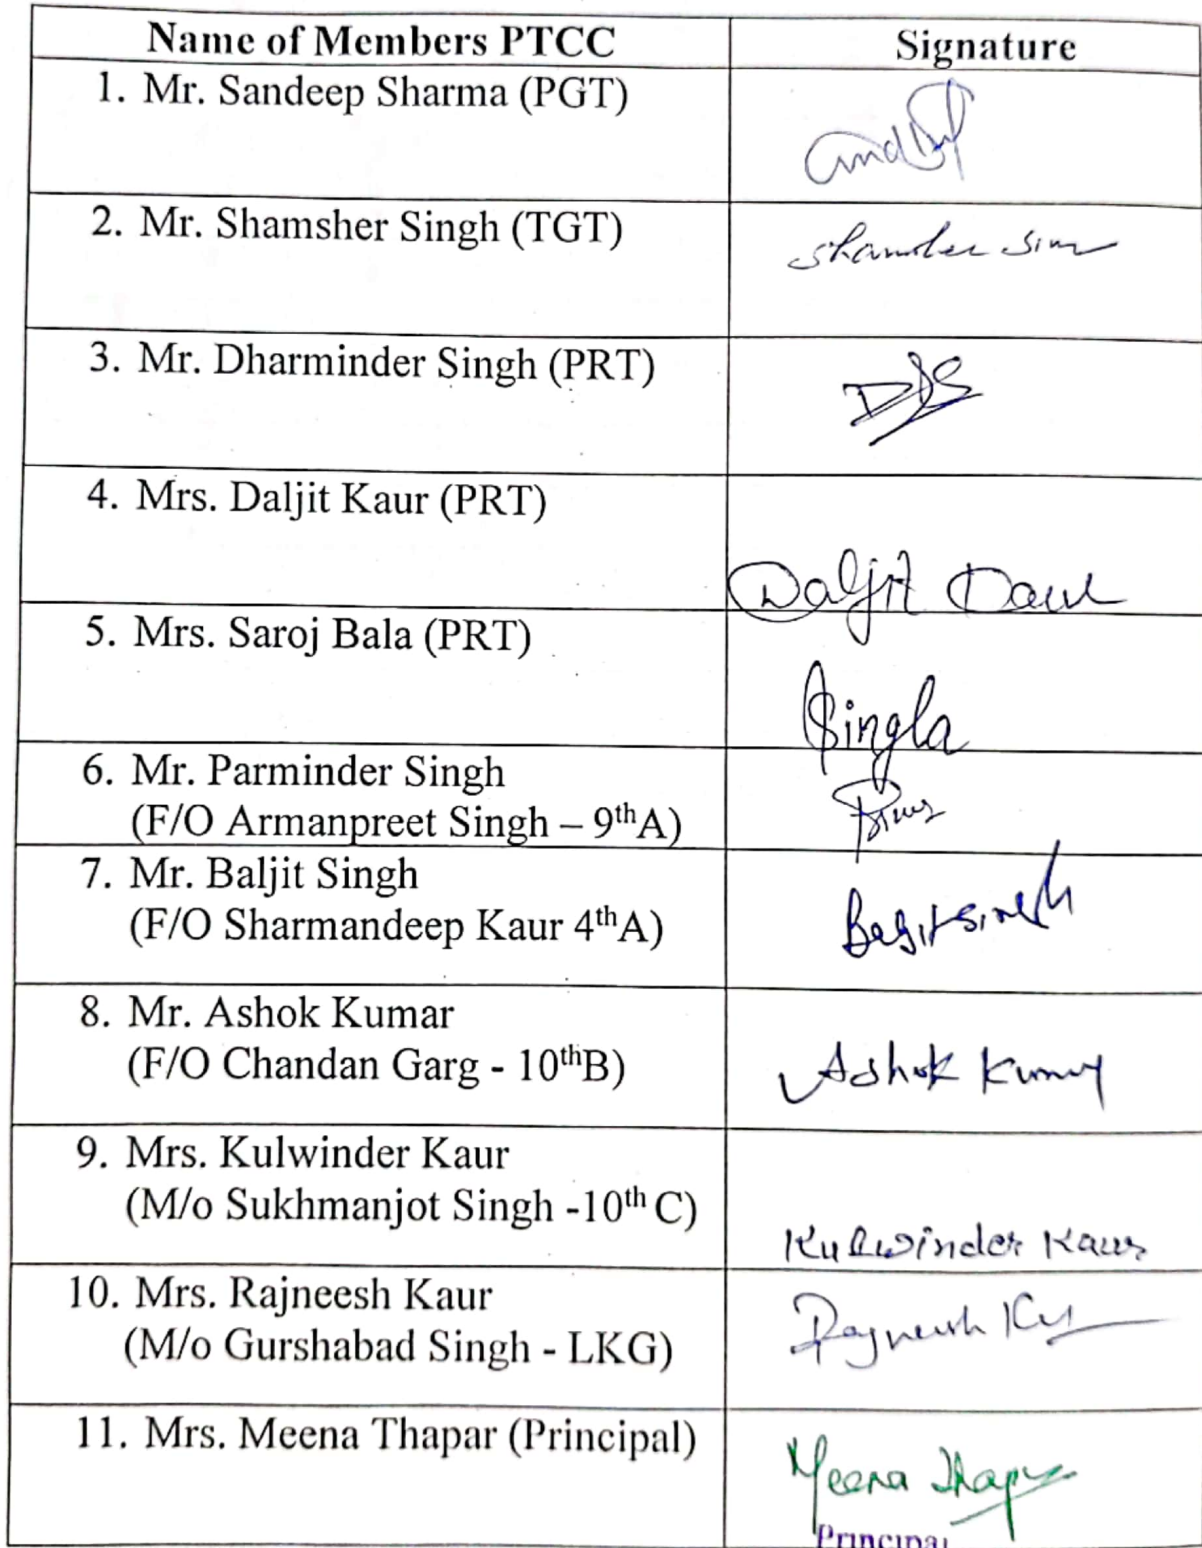 Name of Members PTCC
Signature
1. Mr. Sandeep Sharma (PGT)
2. Mr. Shamsher Singh (TGT)
3. Mr. Dharminder Singh (PRT)
4. Mrs. Daljit Kaur (PRT)
Daljit Kaur
5. Mrs. Saroj Bala (PRT)
Singla
6. Mr. Parminder Singh
(F/O Armanpreet Singh – 9thA)
7. Mr. Baljit Singh
(F/O Sharmandeep Kaur 4thA)
8. Mr. Ashok Kumar
(F/O Chandan Garg - 10thB)
Ashok Kumar
9. Mrs. Kulwinder Kaur
(M/o Sukhmanjot Singh -10th C)
Kulwinder Kaur
10. Mrs. Rajneesh Kaur
(M/o Gurshabad Singh - LKG)
Rajneesh
11. Mrs. Meena Thapar (Principal)
Meena Thapar
Principal